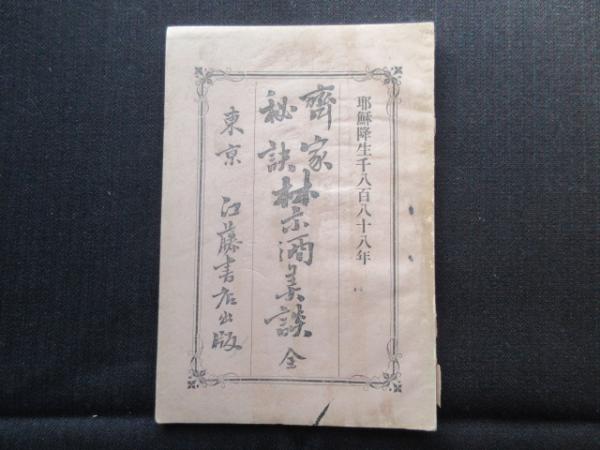 耶蘇降生千八百八十八年
齊家
秘訣
禁酒美談 全
東京 江藤書店出版